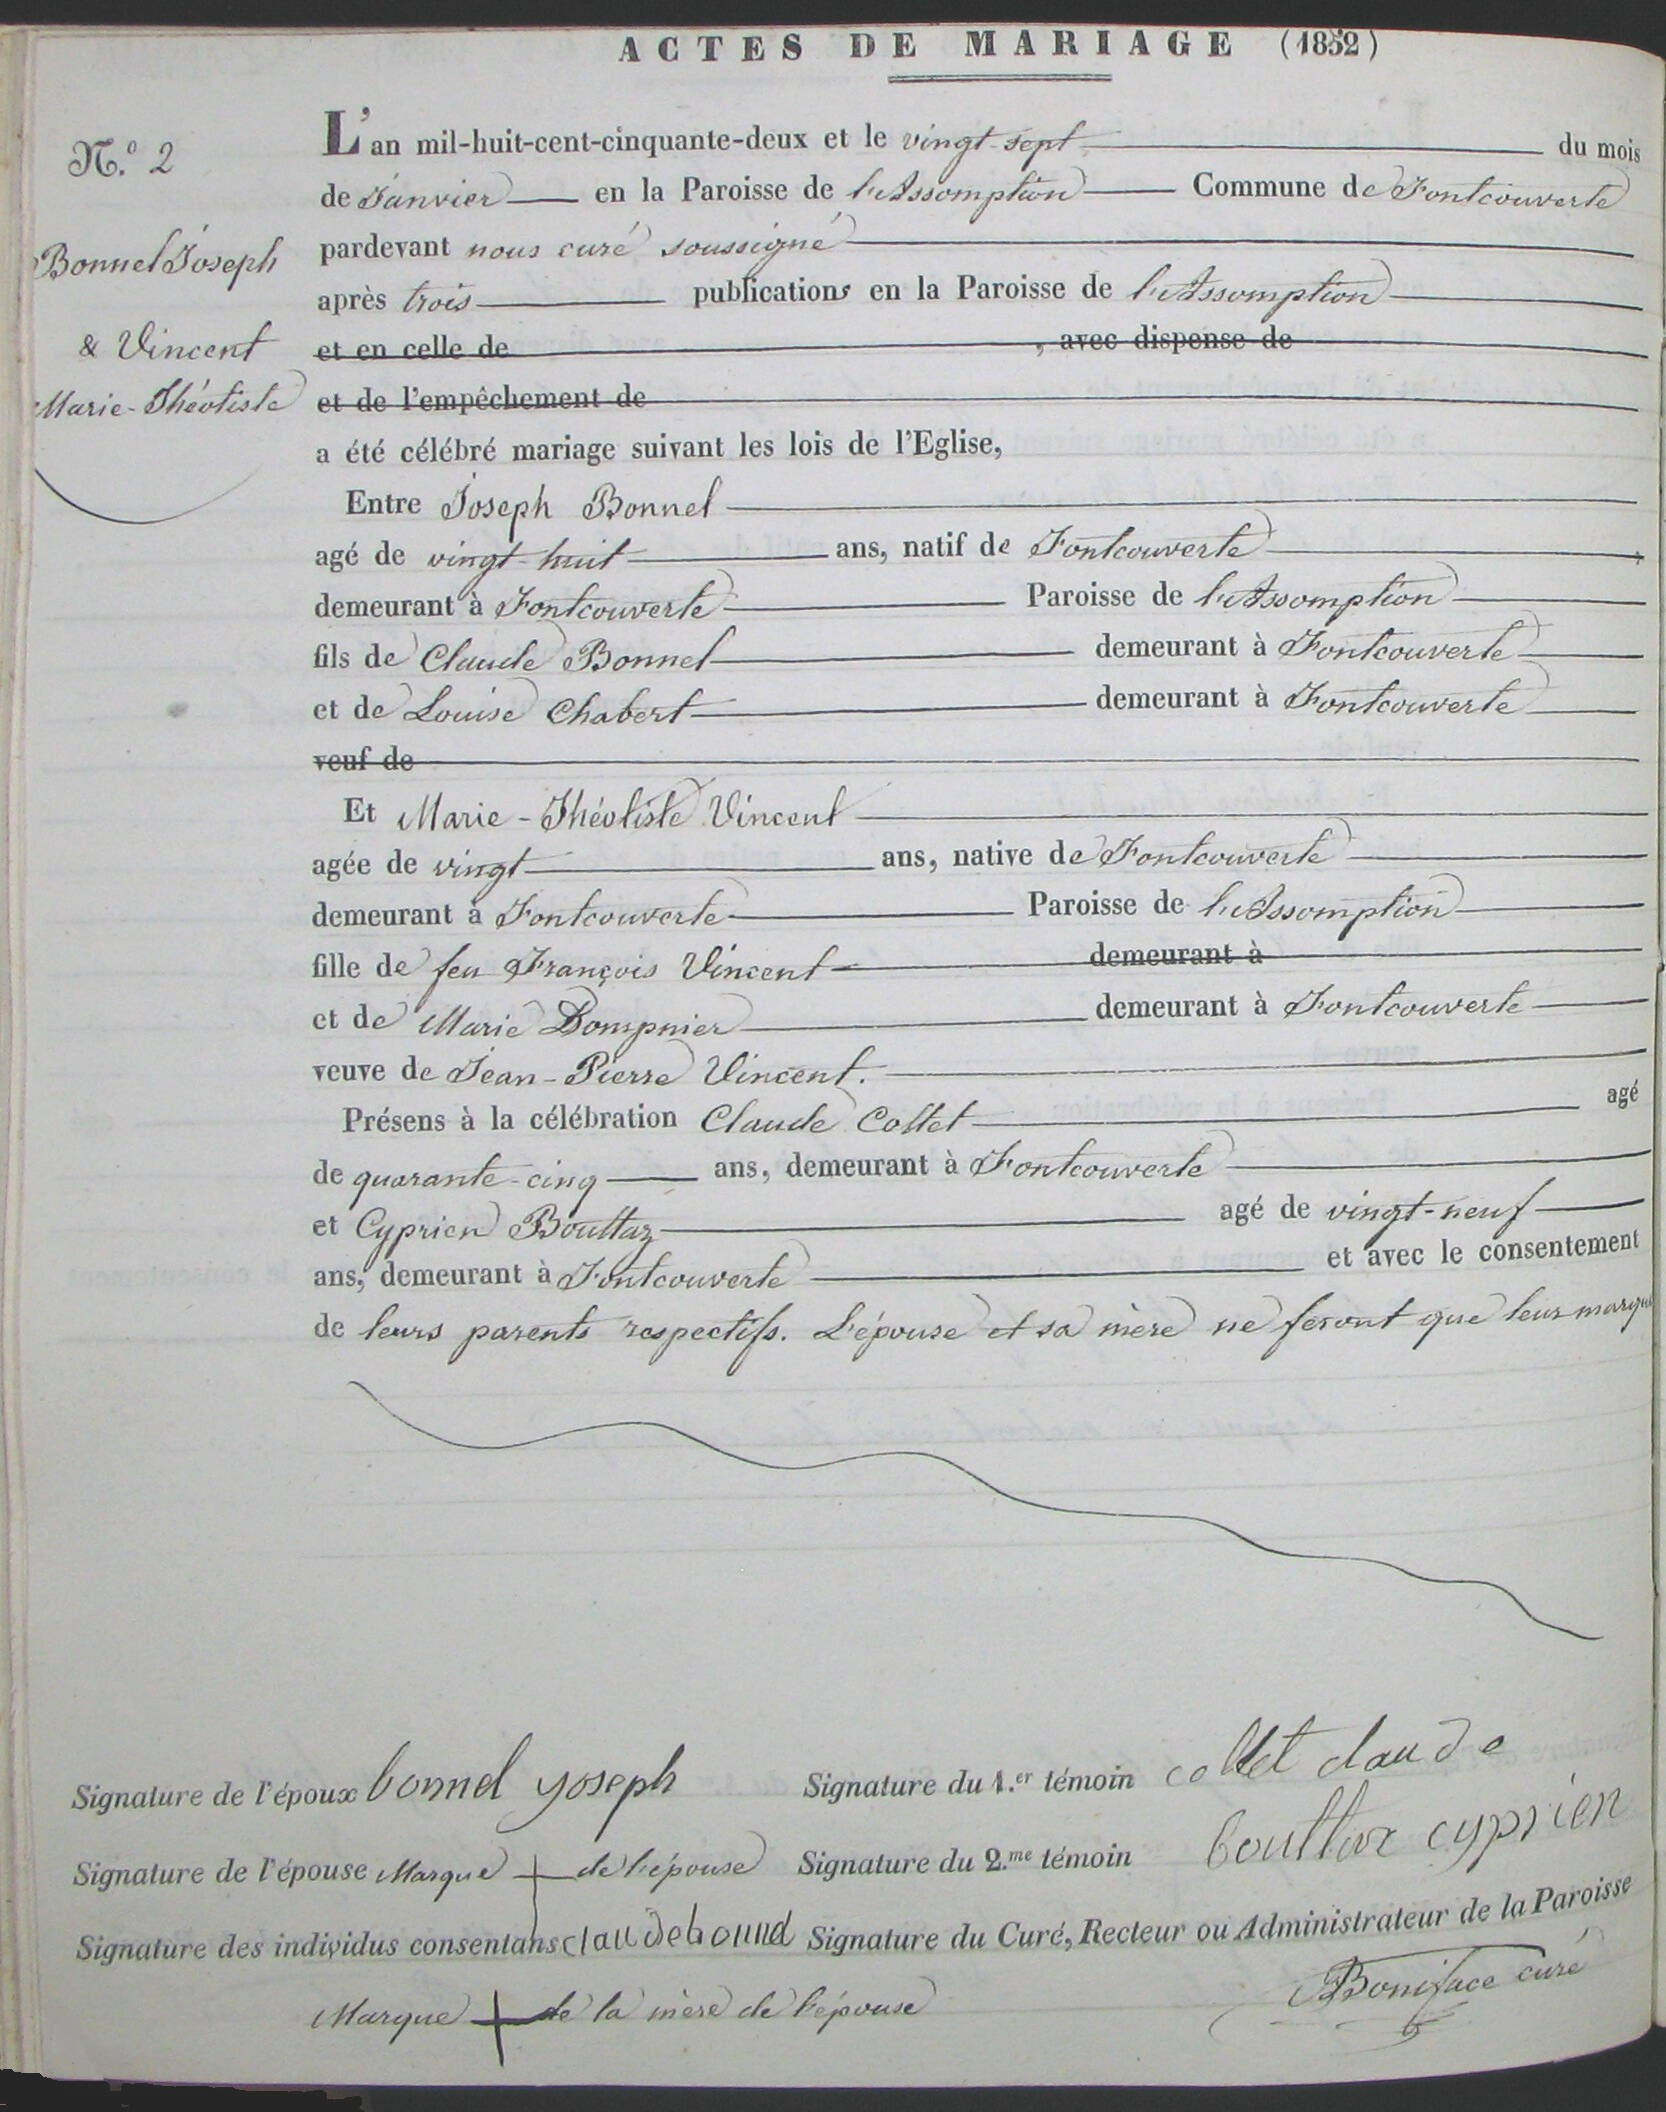 ACTES DE MARIAGE (1852)
N.º 2
Bonnel Joseph
& Vincent
Marie-Théotiste
L'an mil-huit-cent-cinquante-deux et le vingt-sept du mois
de Janvier en la Paroisse de l'Assomption Commune de Fontcouverte
pardevant nous curé soussigné
après trois publications en la Paroisse de l'Assomption
et en celle de , avec dispense de
et de l'empêchement de
a été célébré mariage suivant les lois de l'Eglise,
Entre Joseph Bonnel
agé de vingt-huit ans, natif de Fontcouverte
demeurant à Fontcouverte Paroisse de l'Assomption
fils de Claude Bonnel demeurant à Fontcouverte
et de Louise Chabert demeurant à Fontcouverte
veuf de
Et Marie-Théotiste Vincent
agée de vingt ans, native de Fontcouverte
demeurant à Fontcouverte Paroisse de l'Assomption
fille de feu François Vincent demeurant à
et de Marie Dompnier demeurant à Fontcouverte
veuve de Jean-Pierre Vincent.
Présens à la célébration Claude Collet agé
de quarante-cinq ans, demeurant à Fontcouverte
et Cyprien Bouttaz agé de vingt-neuf
ans, demeurant à Fontcouverte et avec le consentement
de leurs parents respectifs. L'épouse et sa mère ne feront que leur marque
Signature de l'époux bonnel yoseph Signature du 1.er témoin collet claude
Signature de l'épouse Marque + de l'épouse Signature du 2.me témoin bouttaz cyprien
Signature des individus consentans claude bonnel Signature du Curé, Recteur ou Administrateur de la Paroisse
Marque + de la mère de l'épouse Boniface curé